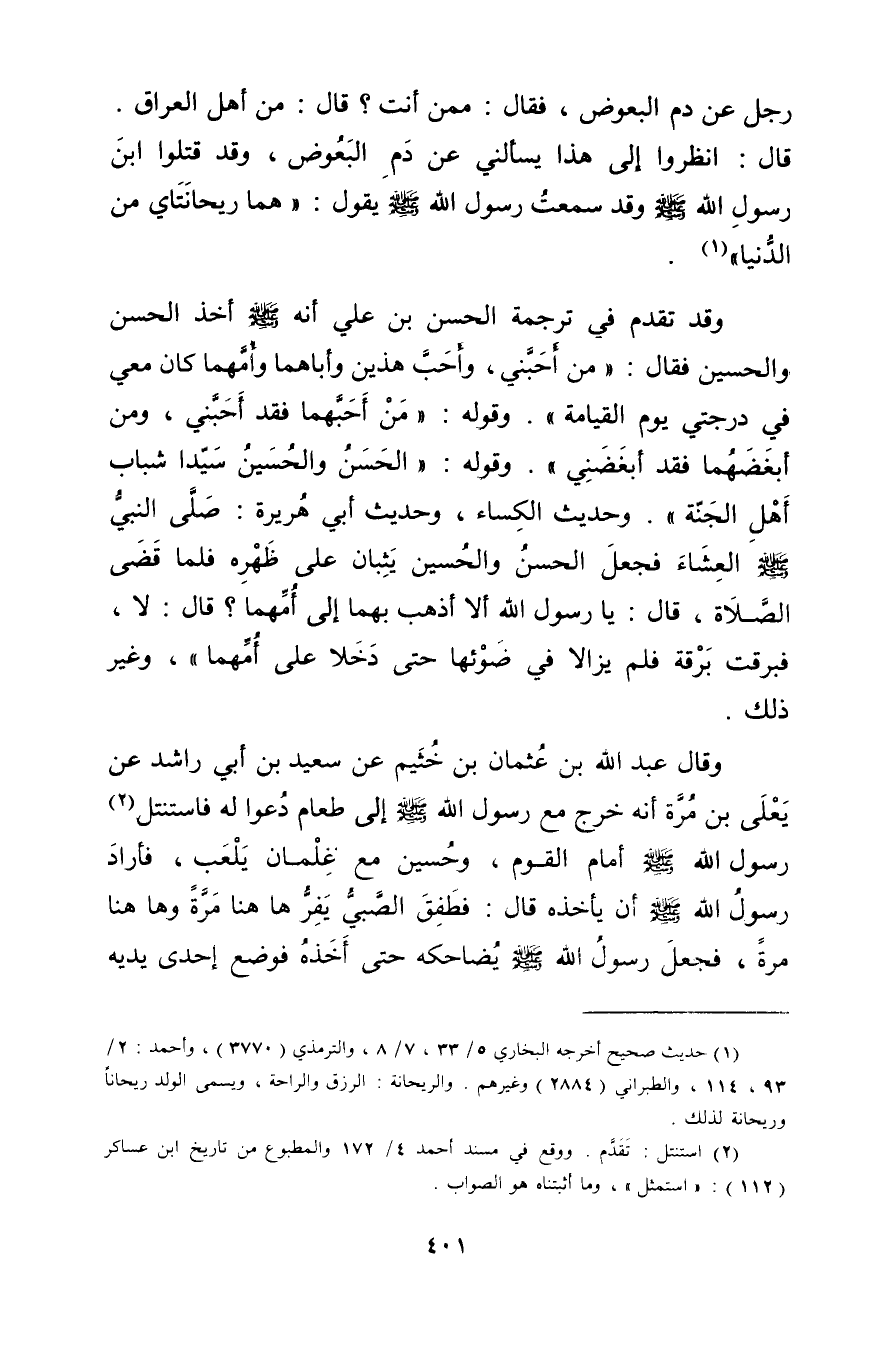 رجل عن دم البعوض ، فقال : ممن أنت ؟ قال : من أهل العراق .
قال : انظروا إلى هذا يسألني عن دَمِ البَعُوض ، وقد قتلوا ابنَ
رسولِ الله ﷺ وقد سمعتُ رسول الله ﷺ يقول : « هما ريحانَتَاي من
الدُّنيا»(١) .
وقد تقدم في ترجمة الحسن بن علي أنه ﷺ أخذ الحسن
والحسين فقال : « من أَحَبَّني ، وأَحَبَّ هذين وأباهما وأُمَّهما كان معي
في درجتي يوم القيامة » . وقوله : « مَنْ أَحَبَّهما فقد أَحَبَّني ، ومن
أبغَضَهُما فقد أبغَضَني » . وقوله : « الحَسَنُ والحُسَينُ سَيّدا شباب
أَهْلِ الجَنّة » . وحديث الكِساء ، وحديث أبي هُريرة : صَلَّى النبيُّ
ﷺ العِشَاءَ فجعلَ الحسنُ والحُسين يَثِبان على ظَهْرِه فلما قَضَى
الصَّلَاة ، قال : يا رسول الله ألا أذهب بهما إلى أُمِّهما ؟ قال : لا ،
فبرقت بَرْقة فلم يزالا في ضَوْئها حتى دَخَلا على أُمِّهما » ، وغير
ذلك .
وقال عبد الله بن عُثمان بن خُثَيم عن سعيد بن أبي راشد عن
يَعْلَى بن مُرَّة أنه خرج مع رسول الله ﷺ إلى طعام دُعوا له فاستنتل(٢)
رسول الله ﷺ أمام القـوم ، وحُسين مع غِلْمـان يَلْعَب ، فأرادَ
رسولُ الله ﷺ أن يأخذه قال : فطَفِقَ الصَّبيُّ يَفِرُّ ها هنا مَرَّةً وها هنا
مرةً ، فجعلَ رسولُ الله ﷺ يُضاحكه حتى أَخَذهُ فوضع إحدى يديه
(١) حديث صحيح أخرجه البخاري ٥/ ٣٣ ، ٧/ ٨ ، والترمذي ( ٣٧٧٠ ) ، وأحمد : ٢/
٩٣ ، ١١٤ ، والطبراني ( ٢٨٨٤ ) وغيرهم . والريحانة : الرزق والراحة ، ويسمى الولد ريحاناً
وريحانة لذلك .
(٢) استنتل : تَقَدَّم . ووقع في مسند أحمد ٤/ ١٧٢ والمطبوع من تاريخ ابن عساكر
( ١١٢ ) : « استمثل » ، وما أثبتناه هو الصواب .
٤٠١